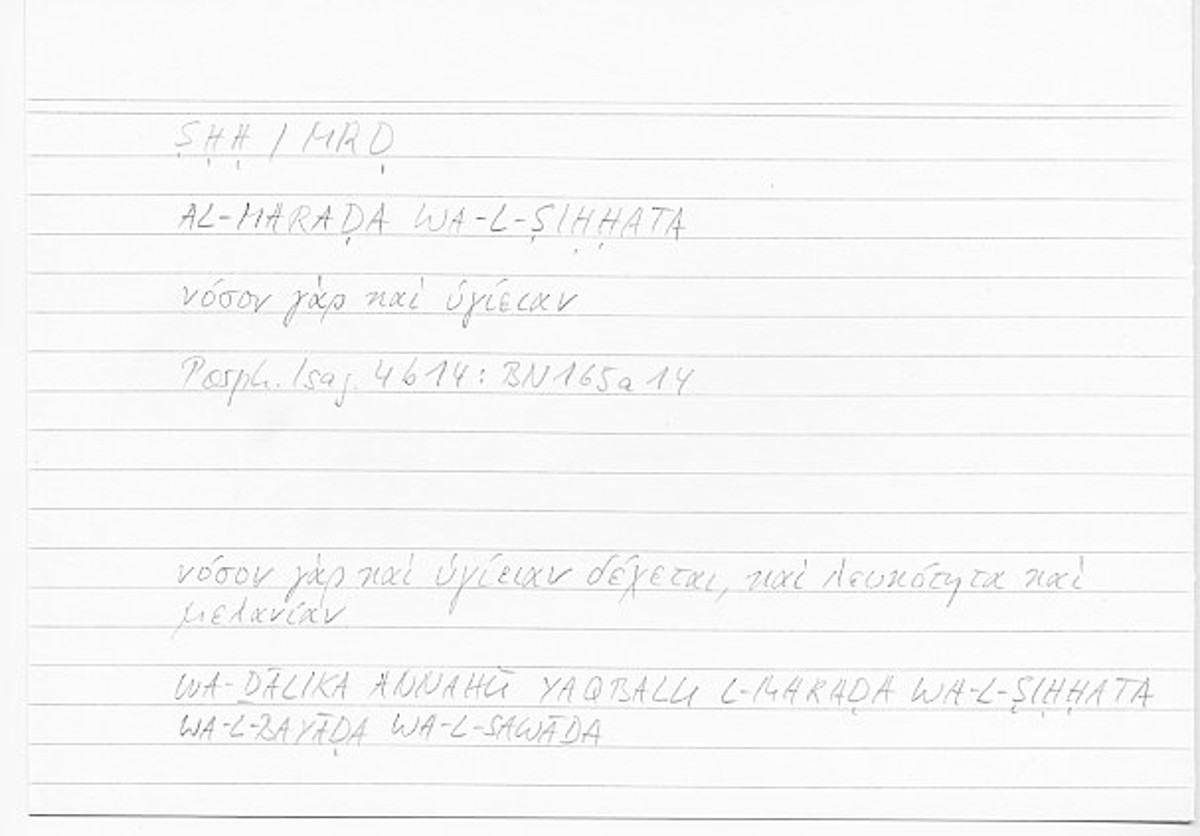 ṢḤḤ / MRḌ
AL-MARAḌA WA-L-ṢIḤḤATA
νόσον γὰρ καὶ ὑγίειαν
Porph. Isag. 4 b 14 : BN 165 a 14
νόσον γὰρ καὶ ὑγίειαν δέχεται, καὶ λευκότητα καὶ
μελανίαν
WA-ḎĀLIKA ANNAHŪ YAQBALU L-MARAḌA WA-L-ṢIḤḤATA
WA-L-BAYĀḌA WA-L-SAWĀDA